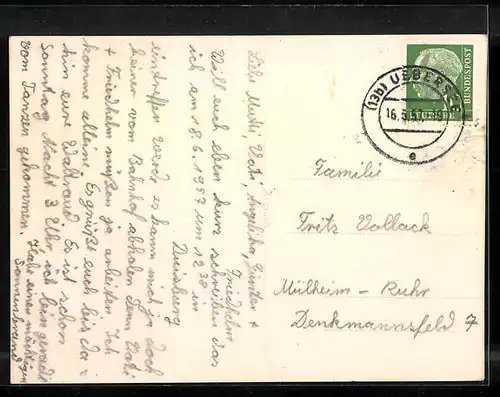 Liebe Mutti, Vati, Angelika, Günter +
Friedhelm
Will euch eben kurz schreiben das
ich am 18.6.1957 um 12 38 in
Duisburg
eintreffen werde es kann mich ja doch
keiner vom Bahnhof abholen Denn Vati
+ Friedhelm müßen ja arbeiten Ich
komme alleine. Es grüßt euch bis da-
hin eure Waltraud Es ist schon
Sonntag Nacht 3 Uhr ich bin gerade
vom Tanzen gekommen.
Habe einen mächtigen
Sonnenbrand
(13b) UEBERSEE
16.6.
e
DEUTSCHE
BUNDESPOST
Familie
Fritz Vollack
Mülheim-Ruhr
Denkmannsfeld 7